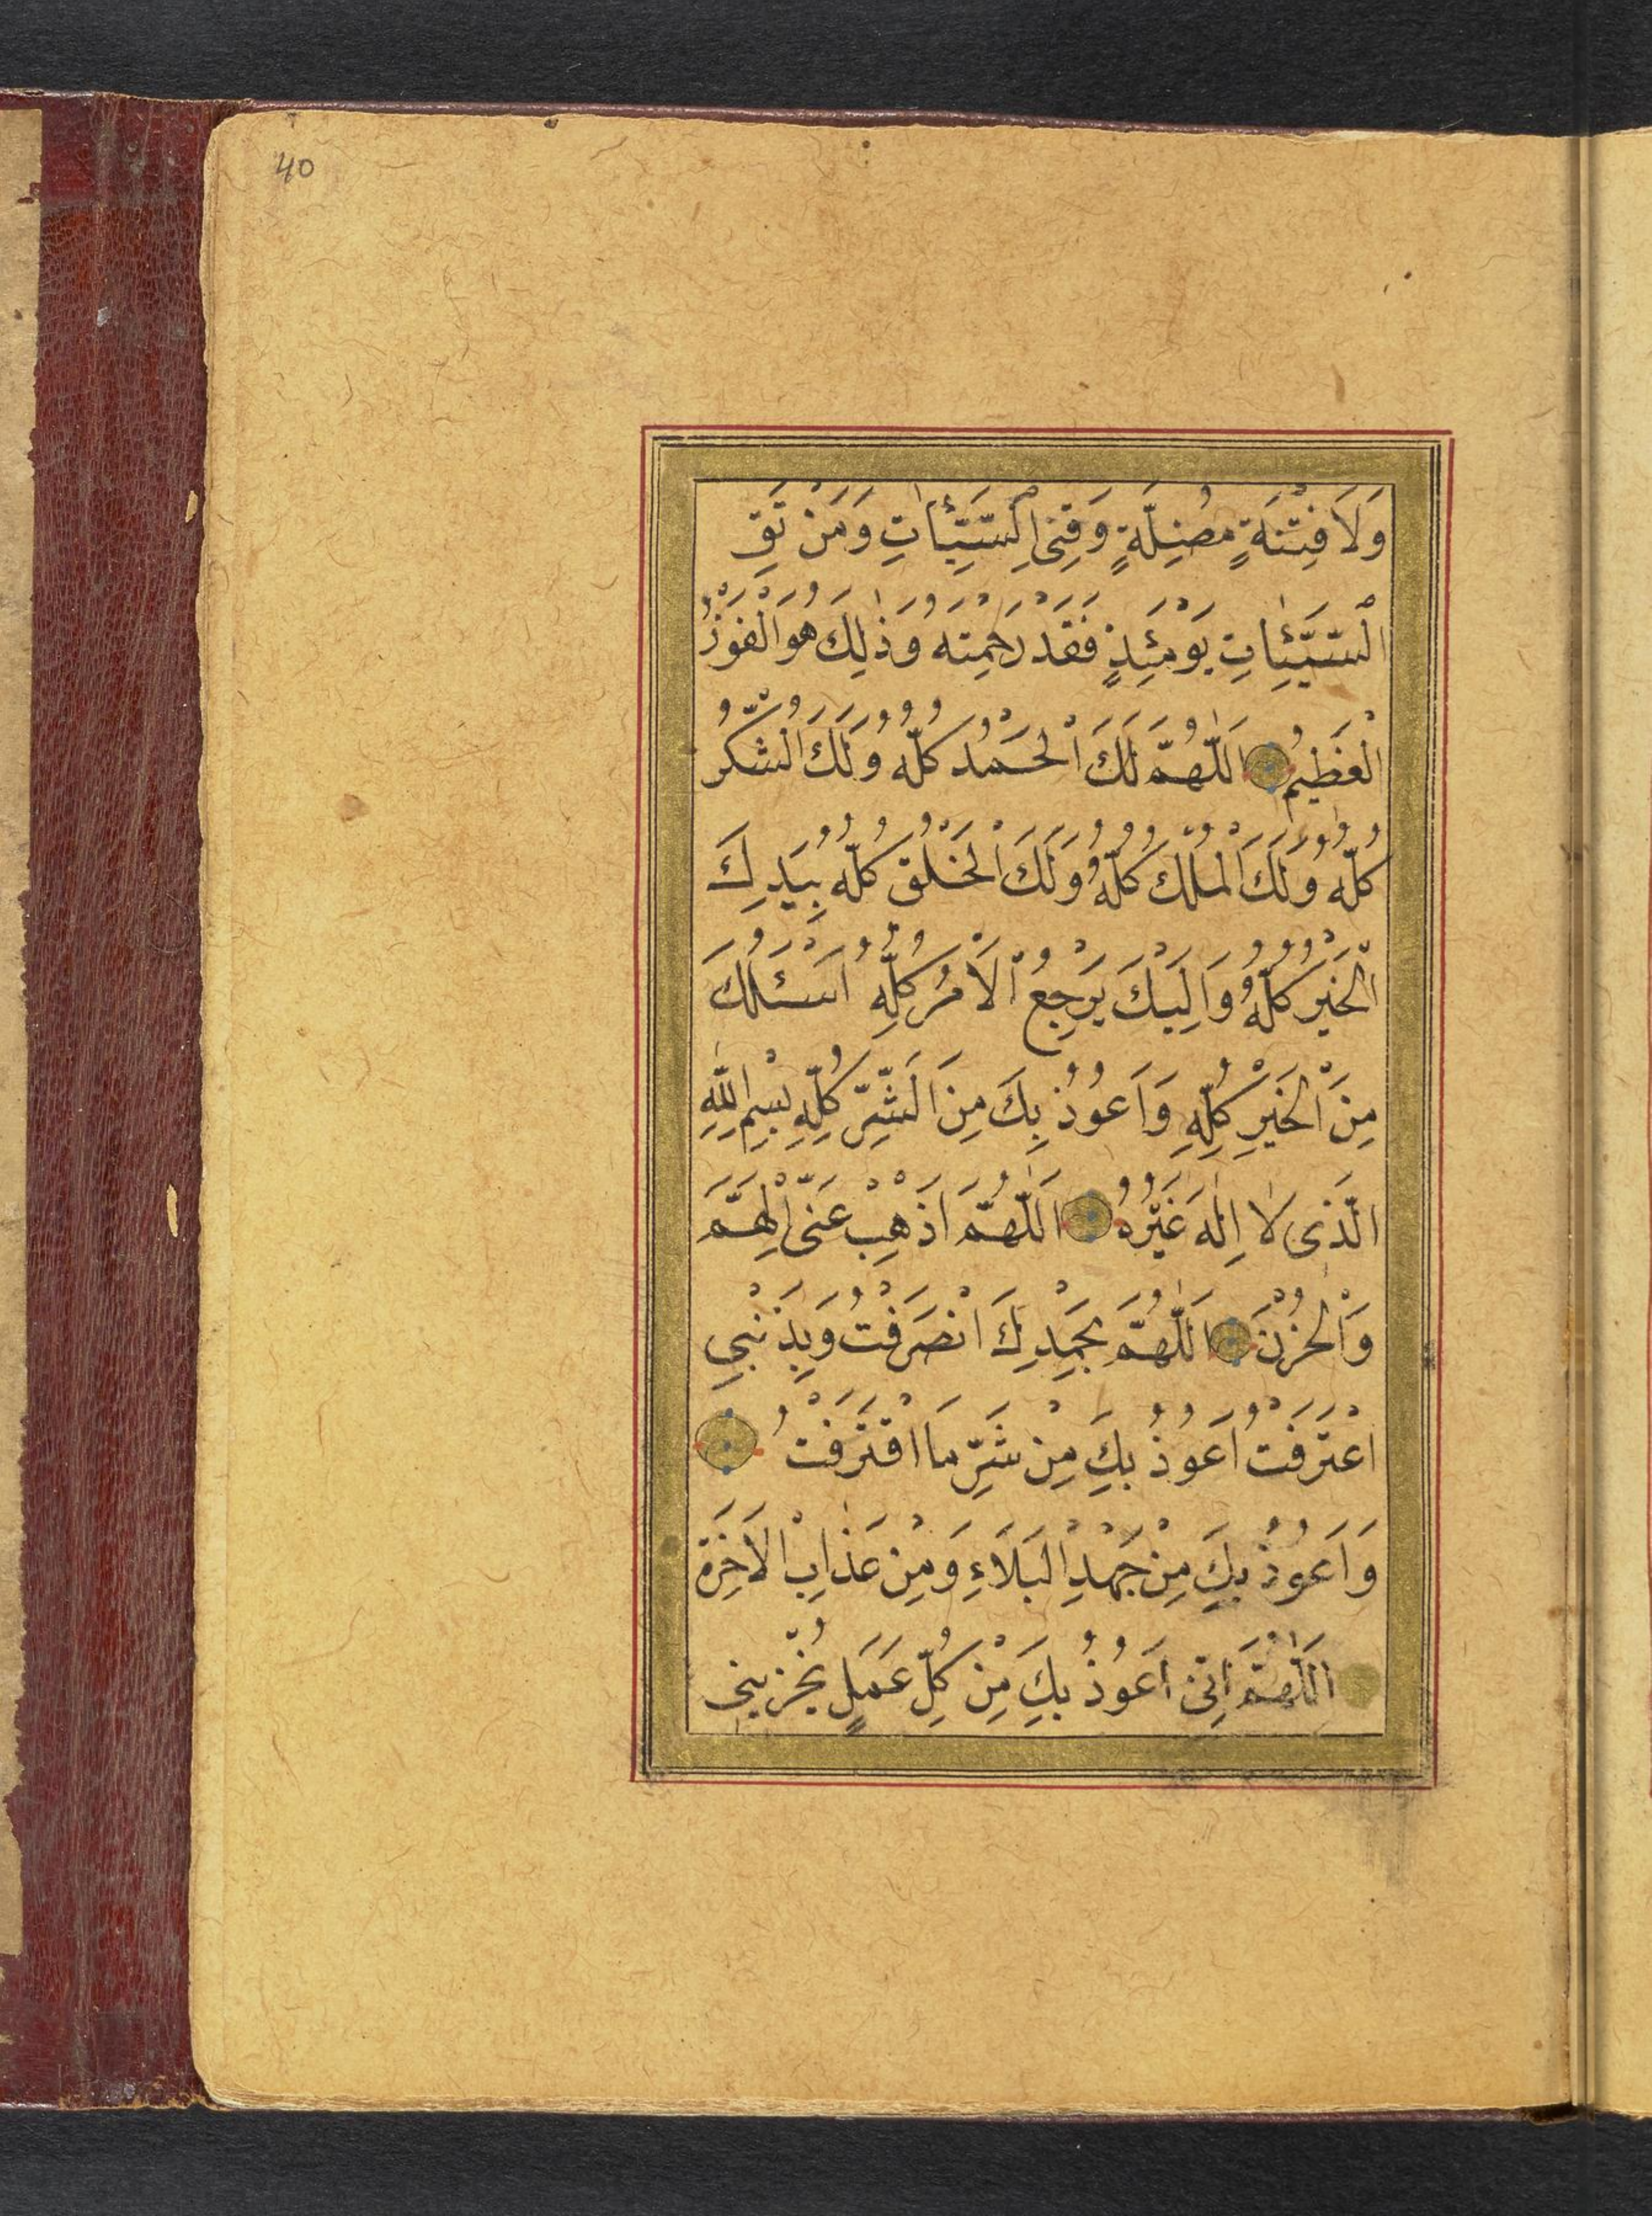 40
وَلَا فِتْنَةٍ مُضِلَّةٍ وَقِنِى السَّيِّئَاتِ وَمَنْ تَقِ
السَّيِّئَاتِ يَوْمَئِذٍ فَقَدْ رَحِمْتَهُ وَذٰلِكَ هُوَ الْفَوْزُ
الْعَظِيمُ اَللّٰهُمَّ لَكَ الْحَمْدُ كُلُّهُ وَلَكَ الشُّكْرُ
كُلُّهُ وَلَكَ الْمُلْكُ كُلُّهُ وَلَكَ الْخَلْقُ كُلُّهُ بِيَدِكَ
الْخَيْرُ كُلُّهُ وَاِلَيْكَ يَرْجِعُ الْاَمْرُ كُلُّهُ اَسْئَلُكَ
مِنَ الْخَيْرِ كُلِّهِ وَاَعُوذُ بِكَ مِنَ الشَّرِّ كُلِّهِ بِسْمِ اللّٰهِ
الَّذِى لَا اِلٰهَ غَيْرُهُ اَللّٰهُمَّ اَذْهِبْ عَنِّى الْهَمَّ
وَالْحُزْنَ اَللّٰهُمَّ بِحَمْدِكَ انْصَرَفْتُ وَبِذَنْبِى
اعْتَرَفْتُ اَعُوذُ بِكَ مِنْ شَرِّ مَا اقْتَرَفْتُ
وَاَعُوذُ بِكَ مِنْ جَهْدِ الْبَلَاءِ وَمِنْ عَذَابِ الْاٰخِرَةِ
اَللّٰهُمَّ اِنِّى اَعُوذُ بِكَ مِنْ كُلِّ عَمَلٍ يُخْزِينِى